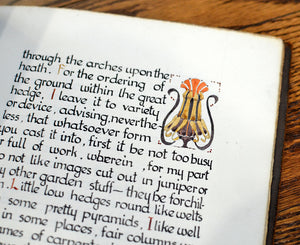 through the arches upon the
heath. For the ordering of
the ground within the great
hedge, I leave it to variety
or device, advising, neverthe
less, that whatsoever form
you cast it into, first it be not too busy
or full of work, wherein, for my part
do not like images cut out in juniper or
ny other garden stuff—they be for chil-
n. Little low hedges round like welts
h some pretty pyramids, I like well
in some places, fair columns
ames of carpent